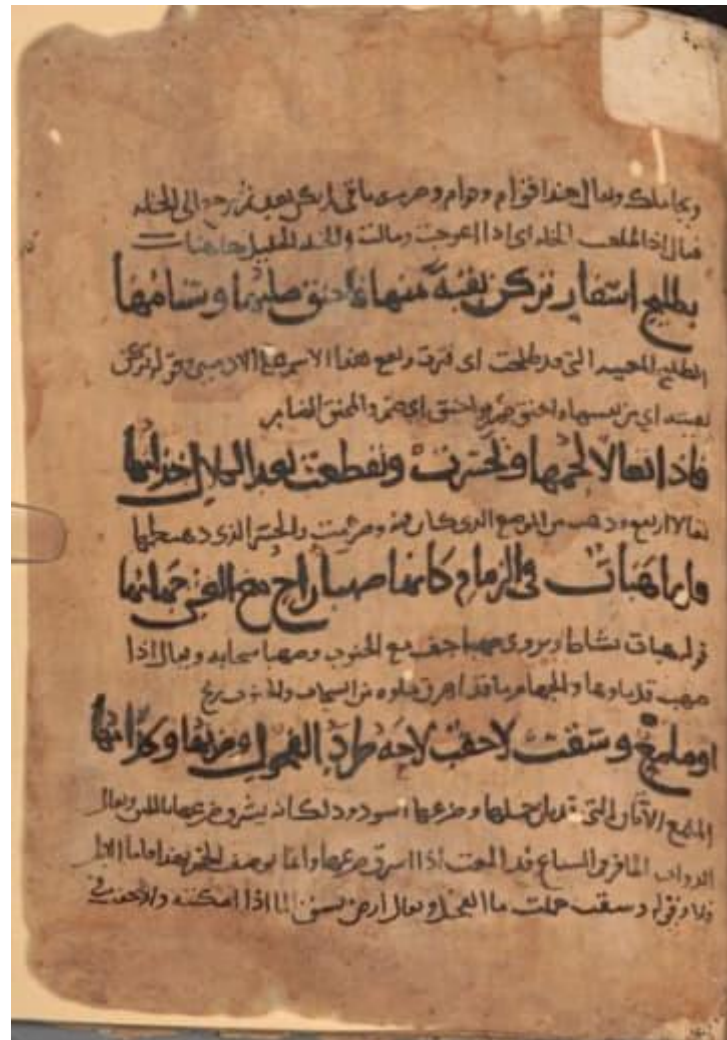 ويجاملك ويقال هذا قوام وقوام وصرمه باقي لم يكن بعد ثم رجع الى الخلة
فقال اذا ظلعت الخلة اي اذا اعوجت ومالت والخلة الخليل هاهنا
بطليح اسفار تركن بقية منها فاحنق صلبها وسنامها
الطليح المعيية التي قد طلحت اي وقع هذا الاسم على وقوله تركن
بقيته اي من نفسها احنق ضمر واحنق اي ضمر والمحنق الضامر
فاذا تغالا لحمها وتحسرت وتقطعت بعد الكلال خدامها
تغالا ارتفع وذهب من الموضع الذي كان فيه والذي ذهب لحمها
فلها هباب في الزمام كانها صهبا راح مع الجنوب جهامها
قوله هباب نشاط ويروى صهبا خف مع الجنوب وصهبا سحابه ويقال اذا
والجهام ما قد اهراق ماوه من السحاب ريح
او ملمع وسقت لاحقب لاحه طرد الفحول وضربها وكدامها
الملمع الاتان التي قد بان حملها وضرعها اسود وذلك انه يشرق ضرعها باللبن ويقال
لذوات الحافر والسباع قد المعت اذا اشرق ضرعها وانما يوصف الحمر بهذا فاما الابل
فلا وقوله وسقت حملت ما الفحل ويقال ارض تسق الما اذا امكنته والاحقب في